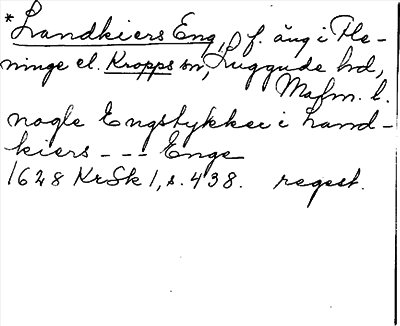 *Landkiers Eng, f. äng i Fle-
ninge el. Kropps sn, Luggude hd,
Mafm. l.
nogle Engstykker i Land-
kiers - - - Enge
1628 KrSk 1, s. 438. regest.